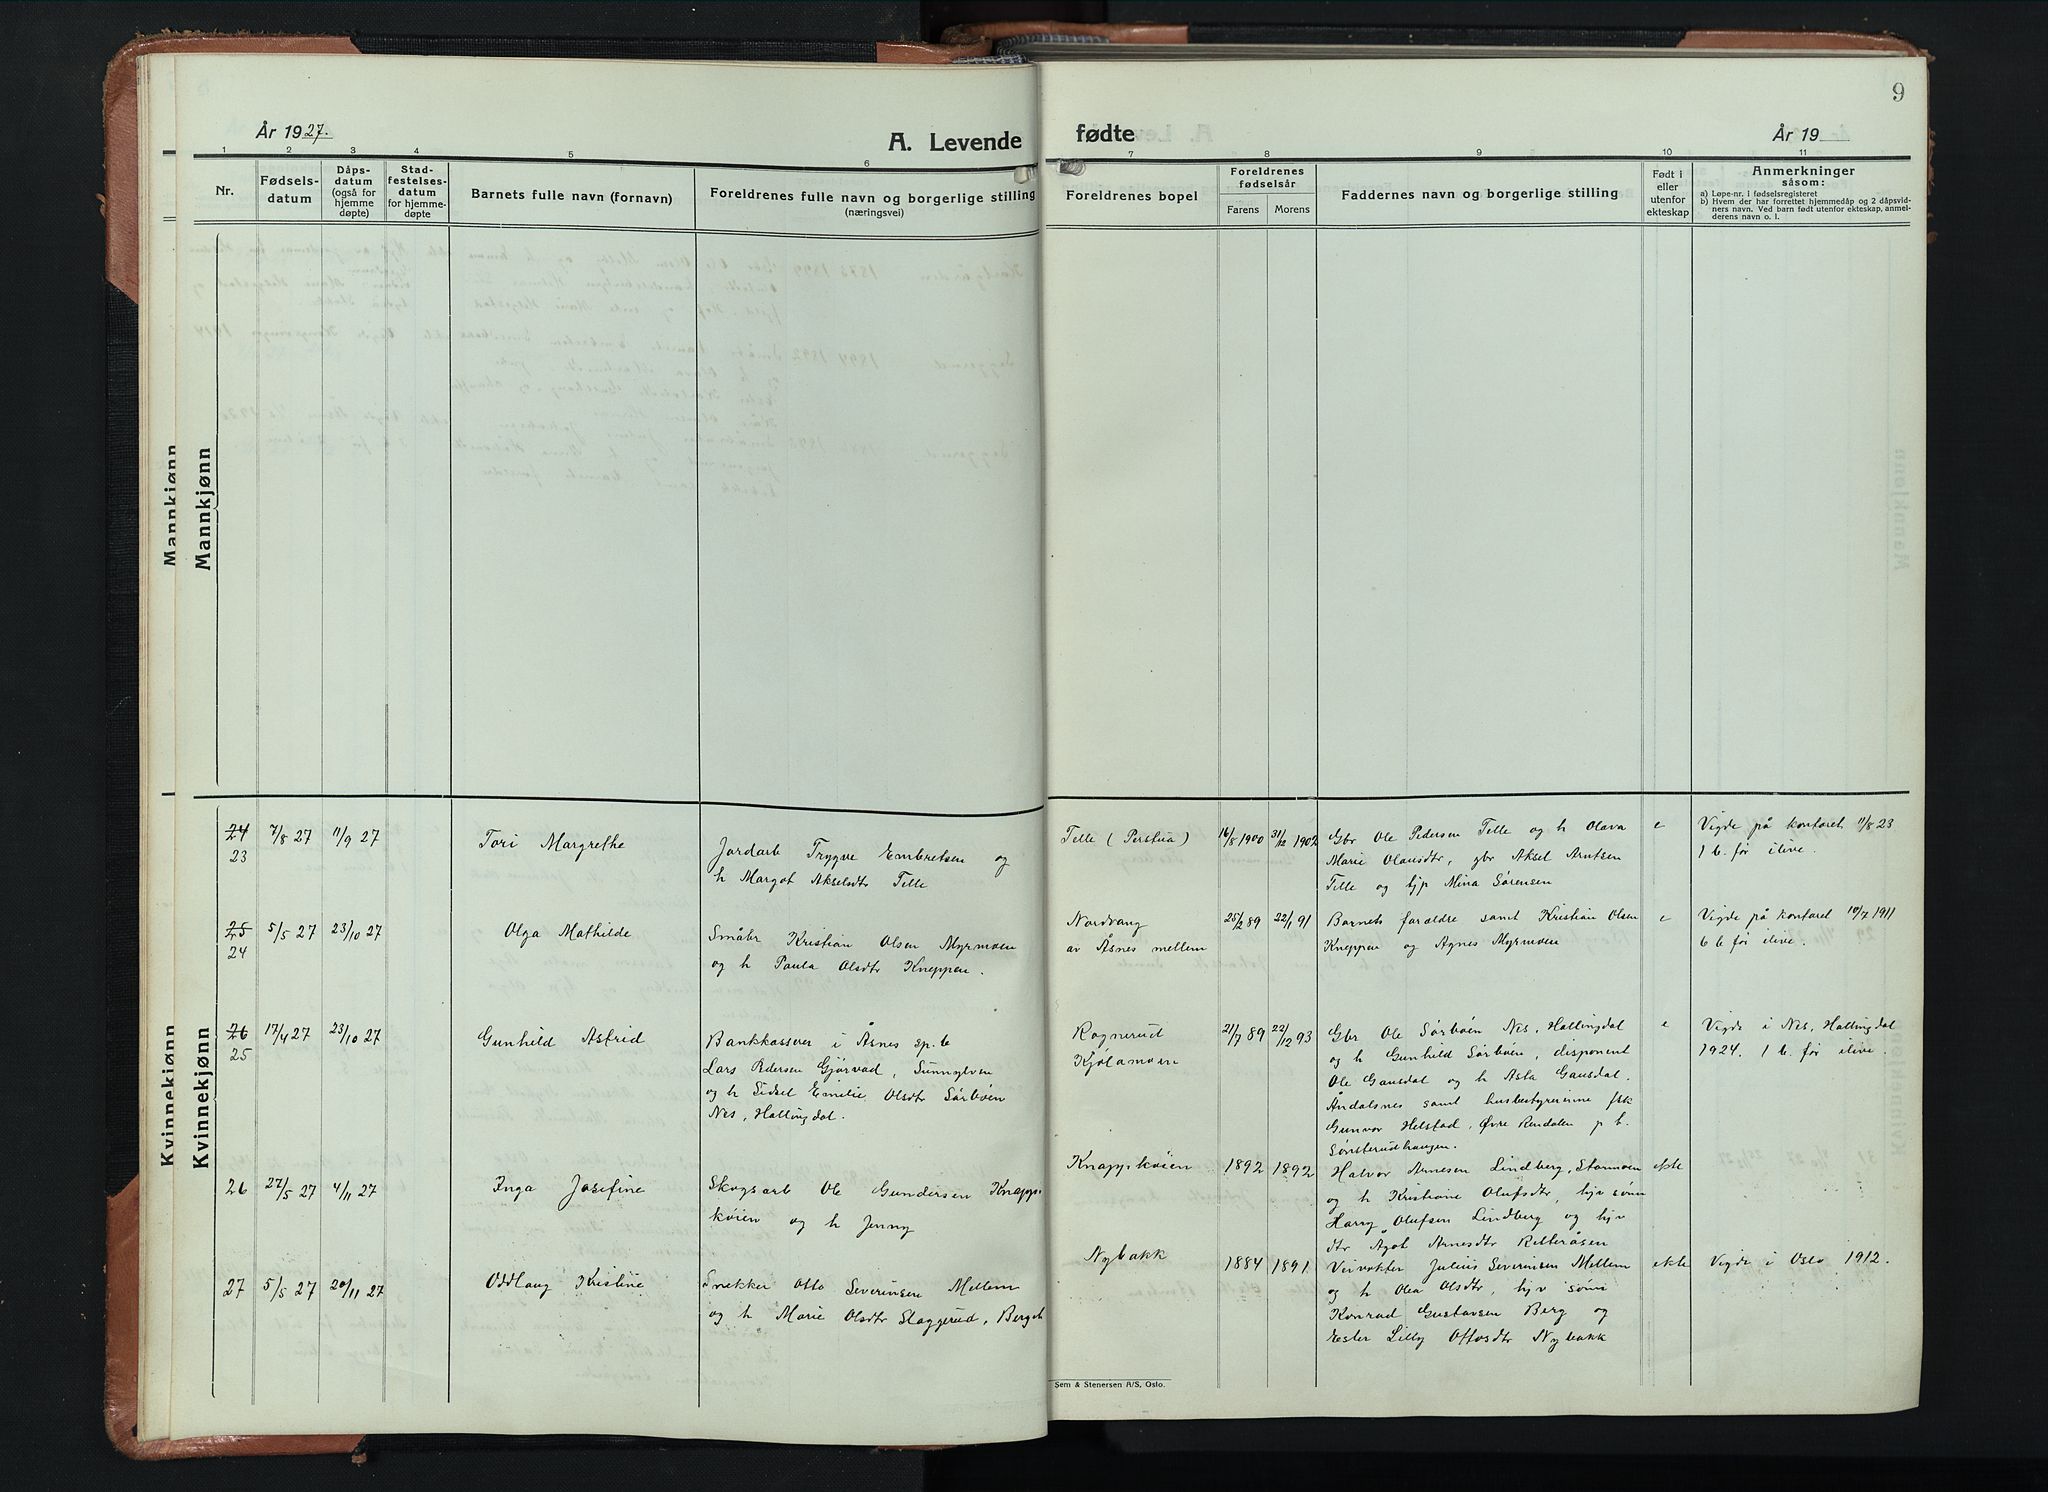 9
År 1927.
A. Levende fødte
År 19
1 2 3 4 5 6 7 8 9 10 11
Nr.
Fødsels-
datum
Dåps-
datum
(også for
hjemme
døpte)
Stad-
festelses-
datum
for hjemme-
døpte
Barnets fulle navn (fornavn)
Foreldrenes fulle navn og borgerlige stilling
(næringsvei)
Foreldrenes bopel
Foreldrenes
fødselsår
Farens Morens
Faddernes navn og borgerlige stilling
Født i
eller
utenfor
ekteskap
Anmerkninger
såsom:
a) Løpe-nr. i fødselsregisteret
b) Hvem der har forrettet hjemmedåp og 2 dåpsvid-
ners navn. Ved barn født utenfor ekteskap, anmel-
derens navn o. l.
Mannkjønn
Mannkjønn
Kvinnekjønn
Kvinnekjønn
24
23
7/8 27
11/9 27
Tori Margrethe
Jordarb Trygve Embretsen og
h Margot Akselsdtr Telle
Telle (Perstua)
16/8 1900
31/12 1902
Gbr Ole Pedersen Telle og h Olava
Marie Olausdtr, gbr Aksel Arntsen
Telle og hjp Mina Sørensen
e
Vigde på kontoret 11/8 23
1 b. før ilive.
25
24
5/5 27
23/10 27
Olga Mathilde
Småbr Kristian Olsen Myrmoen
og h Paula Olsdtr Kneppen.
Nordvang
av Åsnes mellem
25/2 89
22/1 91
Barnets forældre samt Kristian Olsen
Kneppen og Agnes Myrmoen
e
Vigde på kontoret 10/7 1911
6 b før ilive.
26
25
17/4 27
23/10 27
Gunhild Astrid
Bankkasserer i Åsnes sp.b
Lars Pedersen Gjørvad, Sunnylven
og h Sidsel Emilie Olsdtr Sørbøen
Nes, Hallingdal.
Rognerud
Kjølamoen
21/7 89
22/12 93
Gbr Ole Sørbøen Nes, Hallingdal
og h Gunhild Sørbøen, disponent
Ole Gausdal og h Asta Gausdal.
Åndalsnes samt husbestyrerinne frk
Gunvor Helstad, Øvre Rendalen p.t.
Sønsterudhaugen.
e
Vigde i Nes, Hallingdal
1924. 1 b. før ilive.
26
27/5 27
4/11 27
Inga Josefine
Skogsarb Ole Gundersen Knapps-
køien og h Jenny
Knappskøien
1892
1892
Halvor Arnesen Lindberg, Stormoen
og h Kristiane Olufsdtr, hjv sønn
Harry Olufsen Lindberg og hjv
dtr Agot Arnesdtr Ritteråsen
ekte
27
5/5 27
20/11 27
Oddlaug Kristine
Snekker Otto Severinsen Mellem
og h Marie Olsdtr Slaggerud, Berger
Nybakk
1884
1891
Veivokter Julius Severinsen Mellem
og h Olea Olsdtr, hjv sønn
Konrad Gustavsen Berg og
Ester Lilly Ottosdtr Nybakk
ekte
Vigde i Oslo 1912.
Sem & Stenersen A/S, Oslo.